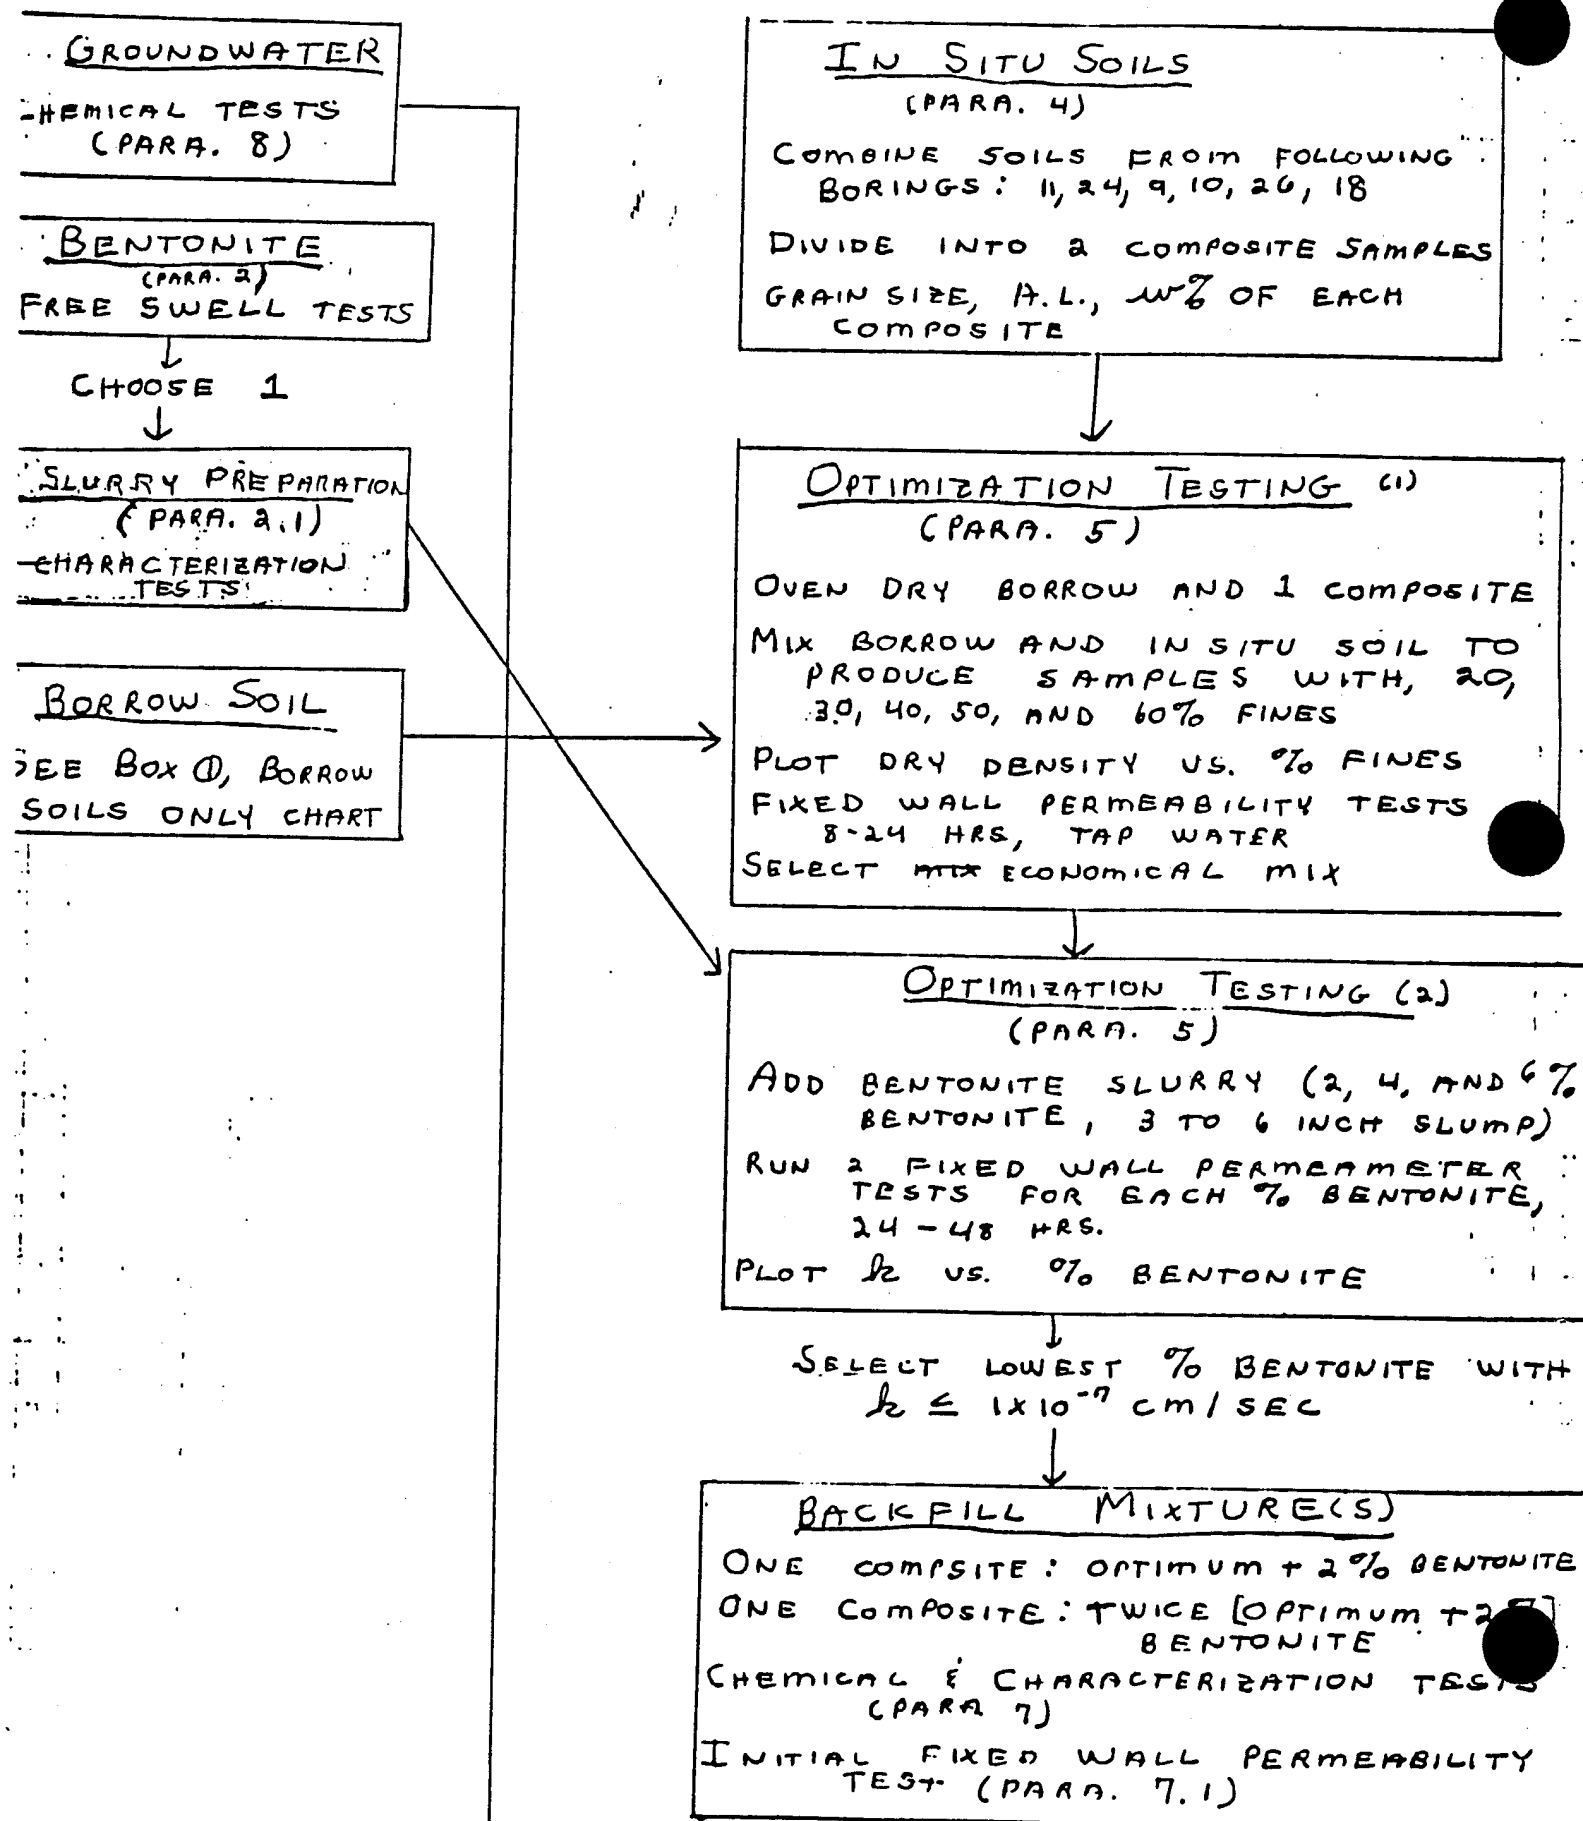 GROUNDWATER
HEMICAL TESTS
(PARA. 8)
BENTONITE
(PARA. 2)
FREE SWELL TESTS
CHOOSE 1
SLURRY PREPARATION
(PARA. 2.1)
CHARACTERIZATION
TESTS
BORROW SOIL
SEE BOX ①, BORROW
SOILS ONLY CHART
IN SITU SOILS
(PARA. 4)
COMBINE SOILS FROM FOLLOWING
BORINGS: 11, 24, 9, 10, 26, 18
DIVIDE INTO 2 COMPOSITE SAMPLES
GRAIN SIZE, A.L., w% OF EACH
COMPOSITE
OPTIMIZATION TESTING (1)
(PARA. 5)
OVEN DRY BORROW AND 1 COMPOSITE
MIX BORROW AND IN SITU SOIL TO
PRODUCE SAMPLES WITH, 20,
30, 40, 50, AND 60% FINES
PLOT DRY DENSITY VS. % FINES
FIXED WALL PERMEABILITY TESTS
8-24 HRS, TAP WATER
SELECT ECONOMICAL MIX
OPTIMIZATION TESTING (2)
(PARA. 5)
ADD BENTONITE SLURRY (2, 4, AND 6%
BENTONITE, 3 TO 6 INCH SLUMP)
RUN 2 FIXED WALL PERMEAMETER
TESTS FOR EACH % BENTONITE,
24-48 HRS.
PLOT k VS. % BENTONITE
SELECT LOWEST % BENTONITE WITH
k ≤ 1x10⁻⁷ cm/SEC
BACKFILL MIXTURE(S)
ONE COMPSITE: OPTIMUM + 2% BENTONITE
ONE COMPOSITE: TWICE [OPTIMUM + 2%]
BENTONITE
CHEMICAL & CHARACTERIZATION TESTS
(PARA 7)
INITIAL FIXED WALL PERMEABILITY
TEST (PARA. 7.1)